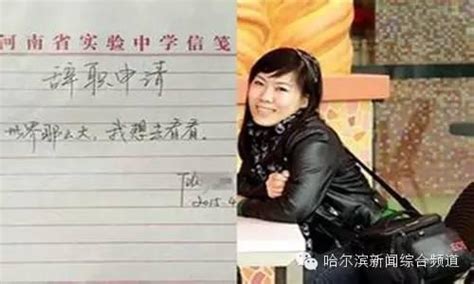 河南省实验中学信笺
辞职申请
世界那么大，我想去看看。
2015.4
哈尔滨新闻综合频道